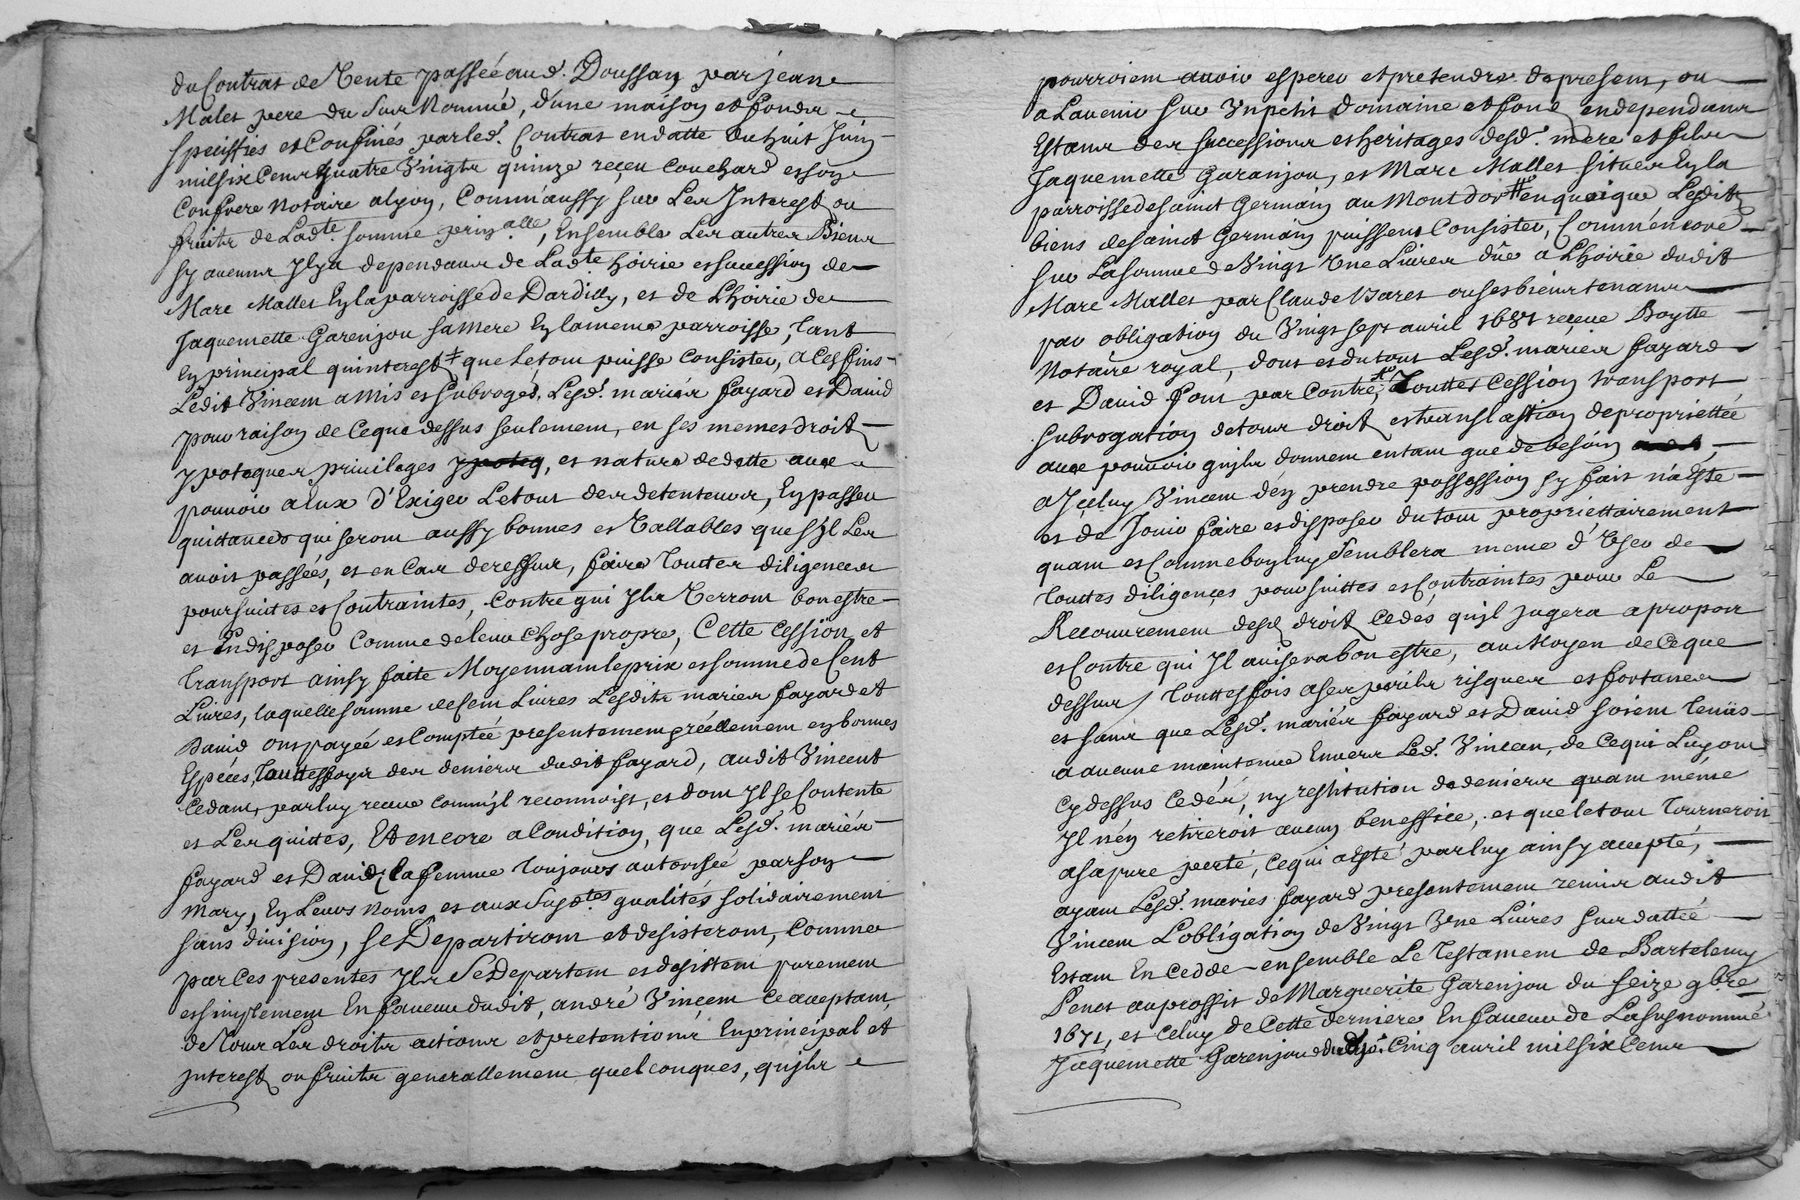 du Contrat de Vente passée aud. Doussan par jean
Malet pere du Surnommé, d'une maison et fondz
speciffiés et Confinés par led. Contrat en datte du huit Juin
mil six Cens quatre Vingtz quinze reçeu Couchard et son
Confrere notaire a lyon, Comm'aussy sur Les Interestz ou
fruitz de Lad.te somme prinz.alle, Ensemble Les autres Biens
sy aucuns Il y a dependans de Lad.te hoirie et succession de
Marc Mallet En la parroisse de Dardilly, et de L'hoirie de
Jaquemette Garenjou sa mere En la meme parroisse, tant
En principal qu'interestz que le tout puisse Consister, a Ces fins
Ledit Vincent a mis et subrogés Lesd. mariés fayard et David
pour raison de Ceque dessus seulement, en ses memes droitz
ypoteques privileges ypoteq, et nature de dette avec
pouvoir a Eux d'Exiger Le tout des detenteurs, En passer
quittances qui seront aussy bonnes et Vallables que s'Il Les
avoit passées, et en Cas de reffus, faire touttes diligences
poursuittes et Contraintes, Contre qui Ilz Verront bon estre
et En disposer Comme de leur Chose propre, Cette Cession et
transport ainsy faite Moyennant le prix et somme de Cent
Livres, laquelle somme de Cent Livres Lesditz mariés fayard et
David ont payée et Comptée presentement et réellement en bonnes
Espéces, touttesfoys des deniers dudit fayard, audit Vincent
Cedant, par luy reçeue Comm'jl reconnoist, et dont Il se Contente
et Les quittes, Et encore a Condition, que Lesd. mariés
fayard et David, la femme toujours autorisée par son
mary, En Leurs noms et aux Susd.tes qualités solidairement
sans division, se Departiront et desisteront, Comme
par Ces presentes Ilz Se Departent et desistent purement
et simplement En faveur dudit, andré Vincent Ce acceptant,
de Tous Les droitz actions et pretentions En principal et
interestz ou fruitz generallement quelconques, qu'jlz
pourroient avoir esperer et pretendre de present, ou
a L'avenir sur Un petit domaine et fond en dependans
Estans des successions et heritages desd. mere et filz
Jaquemette Garanjou, et Marc Mallet situés En la
parroisse de Sainct Germain au Mont d'or en quoique Lesditz
biens de Sainct Germain puissent Consister, Comm'encore
sur La somme de Vingt Une Livres dûe a L'hoirie dudit
Marc Mallet par Claude Varet ou ses bientenans
par obligation du Vingt sept avril 1681 reçeue Boytte
Notaire royal, dont et du tout Lesd. mariés fayard
et David font par Contre, Toutte Cession transport
subrogation de tous droitz et translation de propriettée
avec pouvoir qu'jlz donnent entant que de besoin
a Jceluy Vincent d'en prendre possession sy fait n'a Esté
et de Jouir faire et disposer du tout propriettairement
quant et Comme bon luy semblera meme d'User de
touttes diligences poursuittes et Contraintes pour Le
Recouvrement desd. droitz Cedés qu'jl jugera a propos
et Contre qui Il avisera bon estre, au Moyen de Ceque
dessus, touttesfois a ses perilz risques et fortunes
et sans que Lesd. mariés fayard et David soient tenûs
a aucune maintenue Envers Led. Vincent, de Cequi Luy ont
Cy dessus Cedés, ny restitution de deniers quant même
Il n'en retireroit aucun beneffice, et que le tout tourneroit
a sa pure perte, Cequi a esté par luy ainsy accepté,
ayant Lesd. mariés fayard presentement remis audit
Vincent L'obligation de Vingt Une Livres Sus dattée
Estant En Cedde ensemble Le Testament de Bartelemy
Penet au proffit de Marguerite Garenjou du seize 9bre
1671, et Celuy de Cette derniere En faveur de La Susnommé
Jaquemette Garenjou Cinq avril mil six Cens